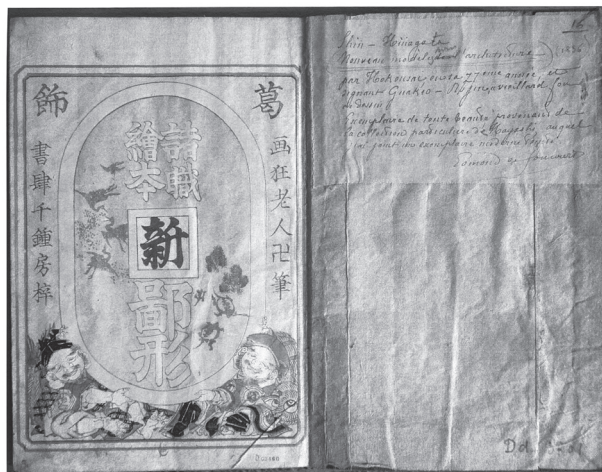 葛飾
画狂老人卍筆
諸職
繪本
新
鄙形
書肆千鍾房梓
Shin - Hinagata
Nouveau architecture (1836)
par Hokousaï en sa 77ème année, et
signant Gwakio - Rojin, vieillard fou
de dessin
Exemplaire de toute beauté provenant de
la collection particulière de Hayashi, auquel
j'ai joint un exemplaire moderne
Edmond de Goncourt
Dd